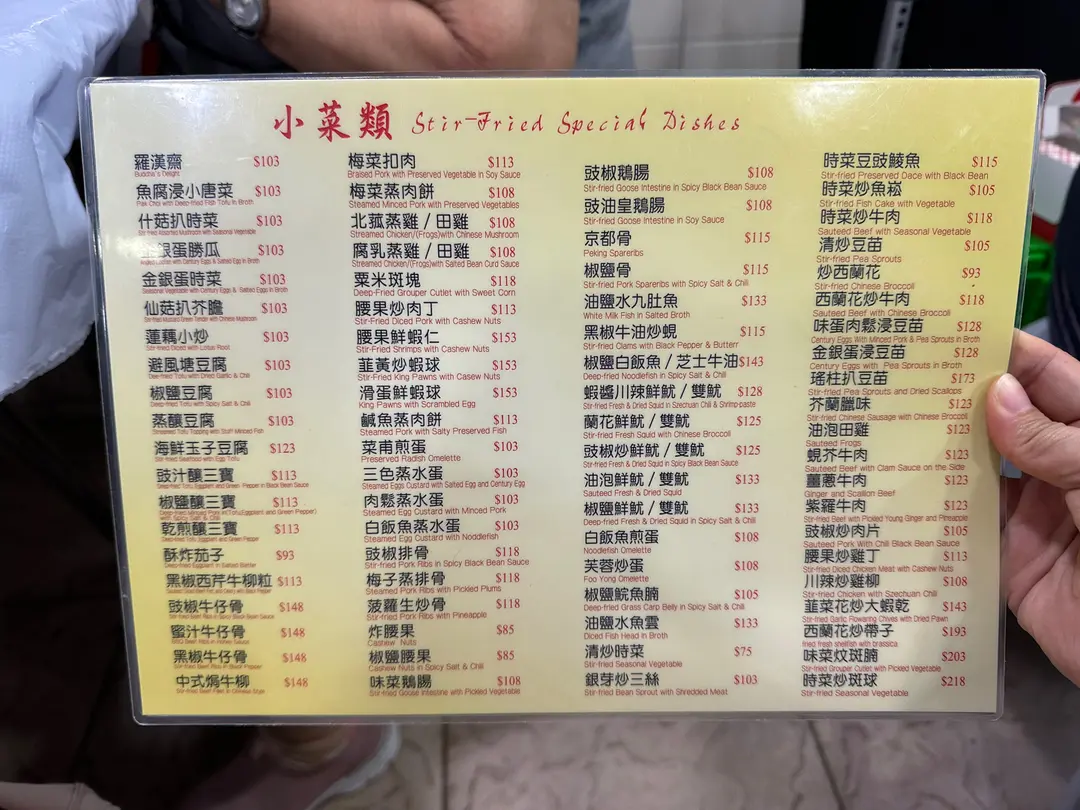 小菜類 Stir-Fried Special Dishes
羅漢齋 $103
Buddha's Delight
魚腐浸小唐菜 $103
Pak Choi with Deep-fried Fish Tofu in Broth
什菇扒時菜 $103
Stir-fried Assorted Mushroom with Seasonal Vegetable
金銀蛋勝瓜 $103
金銀蛋時菜 $103
Seasonal Vegetable with Century Eggs & Salted Eggs in Broth
仙菇扒芥膽 $103
蓮藕小炒 $103
Stir-fried Diced with Lotus Root
避風塘豆腐 $103
Deep-fried Tofu with Dried Garlic & Chili
椒鹽豆腐 $103
Deep-fried Tofu with Spicy Salt & Chili
蒸釀豆腐 $103
Streamed Tofu Topping with Stuff Minced Fish
海鮮玉子豆腐 $123
Stir-fried Seafood with Egg Tofu
豉汁釀三寶 $113
Deep-fried Tofu, Eggplant and Green Pepper in Black Bean Sauce
椒鹽釀三寶 $113
Deep-fried Minced Pork in(Tofu,Eggplant and Green Pepper)
with Spicy Salt & Chili
乾煎釀三寶 $113
Deep-fried Tofu Eggplant and Green Pepper
酥炸茄子 $93
Deep-fried Eggplant in Salted Batter
黑椒西芹牛柳粒 $113
豉椒牛仔骨 $148
Stir-fried Beef Ribs in Spicy Black Bean Sauce
蜜汁牛仔骨 $148
BBQ Beef Ribs in Honey Sauce
黑椒牛仔骨 $148
Stir-fried Beef Ribs in Black Pepper
中式焗牛柳 $148
Stir-fried Beef Filet in Chinese Style
梅菜扣肉 $113
Braised Pork with Preserved Vegetable in Soy Sauce
梅菜蒸肉餅 $108
Steamed Minced Pork with Preserved Vegetables
北菰蒸雞 / 田雞 $108
Streamed Chicken/(Frogs)with Chinese Mushroom
腐乳蒸雞 / 田雞 $108
Streamed Chicken/(Frogs)with Salted Bean Curd Sauce
粟米斑塊 $118
Deep-Fried Grouper Cutlet with Sweet Corn
腰果炒肉丁 $113
Stir-Fried Diced Pork with Cashew Nuts
腰果鮮蝦仁 $153
Stir-Fried Shrimps with Cashew Nuts
韮黃炒蝦球 $153
Stir-Fried King Pawns with Casew Nuts
滑蛋鮮蝦球 $153
King Pawns with Scrambled Egg
鹹魚蒸肉餅 $113
Steamed Pork with Salty Preserved Fish
菜甫煎蛋 $103
Preserved Radish Omelette
三色蒸水蛋 $103
Steamed Eggs Custard with Salted Egg and Century Egg
肉鬆蒸水蛋 $103
Steamed Egg Custard with Minced Pork
白飯魚蒸水蛋 $103
Steamed Egg Custard with Noodlefish
豉椒排骨 $118
Stir-fried Pork Ribs in Spicy Black Bean Sauce
梅子蒸排骨 $118
Steamed Pork Ribs with Pickled Plums
菠蘿生炒骨 $118
Stir-fried Pork Ribs with Pineapple
炸腰果 $85
Cashew Nuts
椒鹽腰果 $85
Cashew Nuts in Spicy Salt & Chili
味菜鵝腸 $108
Stir-fried Goose Intestine with Pickled Vegetable
豉椒鵝腸 $108
Stir-fried Goose Intestine in Spicy Black Bean Sauce
豉油皇鵝腸 $108
Stir-fried Goose Intestine in Soy Sauce
京都骨 $115
Peking Spareribs
椒鹽骨 $115
Stir-fried Pork Spareribs with Spicy Salt & Chili
油鹽水九肚魚 $133
White Milk Fish in Salted Broth
黑椒牛油炒蜆 $115
Stir-fried Clams with Black Pepper & Butterr
椒鹽白飯魚 / 芝士牛油 $143
Deep-fried Noodlefish in Spicy Salt & Chili
蝦醬川辣鮮魷 / 雙魷 $128
Stir-fried Fresh & Dried Squid in Szechuan Chili & Shrimp-paste
蘭花鮮魷 / 雙魷 $125
Stir-fried Fresh Squid with Chinese Broccoli
豉椒炒鮮魷 / 雙魷 $125
Stir-fried Fresh & Dried Squid in Spicy Black Bean Sauce
油泡鮮魷 / 雙魷 $133
Sauteed Fresh & Dried Squid
椒鹽鮮魷 / 雙魷 $133
Deep-fried Fresh & Dried Squid in Spicy Salt & Chili
白飯魚煎蛋 $108
Noodlefish Omelette
芙蓉炒蛋 $108
Foo Yong Omelette
椒鹽鯇魚腩 $105
Deep-fried Grass Carp Belly in Spicy Salt & Chili
油鹽水魚雲 $133
Diced Fish Head in Broth
清炒時菜 $75
Stir-fried Seasonal Vegetable
銀芽炒三絲 $103
Stir-fried Bean Sprout with Shredded Meat
時菜豆豉鯪魚 $115
Stir-fried Preserved Dace with Black Bean
時菜炒魚崧 $105
Stir-fried Fish Cake with Vegetable
時菜炒牛肉 $118
Sauteed Beef with Seasonal Vegetable
清炒豆苗 $105
Stir-fried Pea Sprouts
炒西蘭花 $93
Stir-fried Chinese Broccoli
西蘭花炒牛肉 $118
Sauteed Beef with Chinese Broccoli
味蛋肉鬆浸豆苗 $128
Century Eggs With Minced Pork & Pea Sprouts in Broth
金銀蛋浸豆苗 $128
Century Eggs with Pea Sprouts in Broth
瑤柱扒豆苗 $173
Stir-fried Pea Sprouts and Dried Scallops
芥蘭臘味 $123
Stir-fried Chinese Sausage with Chinese Broccoli
油泡田雞 $123
Sauteed Frogs
蜆芥牛肉 $123
Sauteed Beef with Clam Sauce on the Side
薑蔥牛肉 $123
Ginger and Scallion Beef
紫羅牛肉 $123
Stir-fried Beef with Pickled Young Ginger and Pineapple
豉椒炒肉片 $105
Sauteed Pork With Chili Black Bean Sauce
腰果炒雞丁 $113
Stir-fried Diced Chicken Meat with Cashew Nuts
川辣炒雞柳 $108
Stir-fried Chicken with Szechuan Chili
韮菜花炒大蝦乾 $143
Stir-fried Garlic Flowering Chives with Dried Pawn
西蘭花炒帶子 $193
fried fresh shelfish with brassica
味菜炆斑腩 $203
Stir-fried Grouper Cutlet with Pickled Vegetable
時菜炒斑球 $218
Stir-fried Seasonal Vegetable